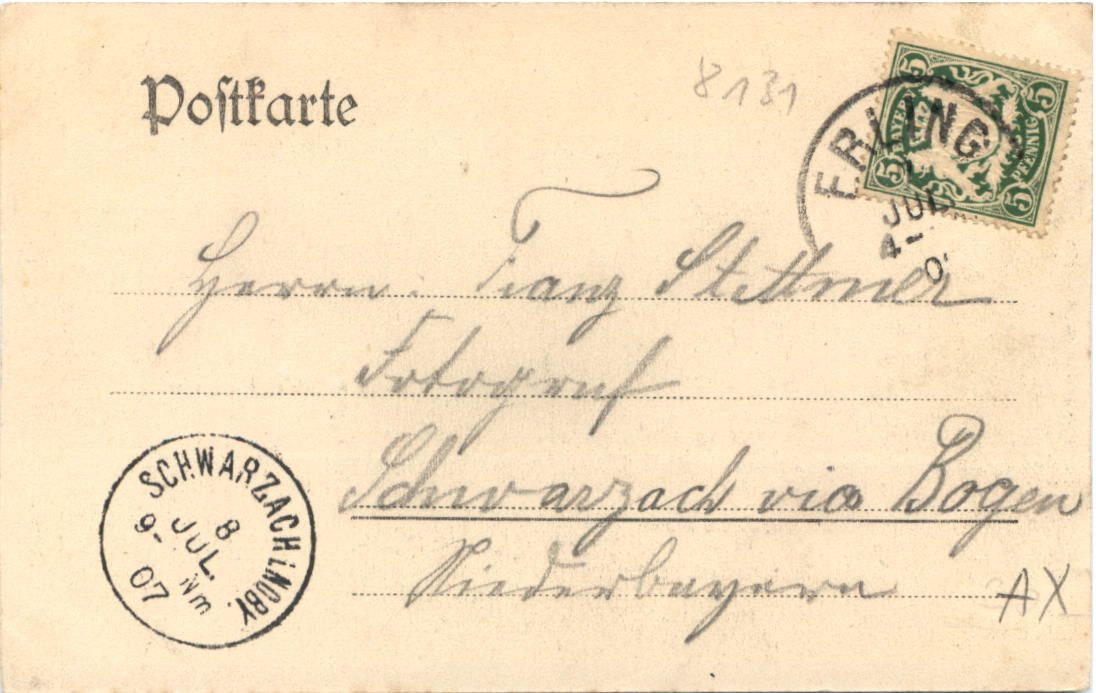 Postkarte
8131
BAYERN
5 5 5 5
PFENNIG
ERLING
JUL
4-
Herrn. Franz Stettmer
Fotograf
Schwarzach via Bogen
Niederbayern
SCHWARZACH i. NDBY.
8
JUL.
9- Nm
07
AX